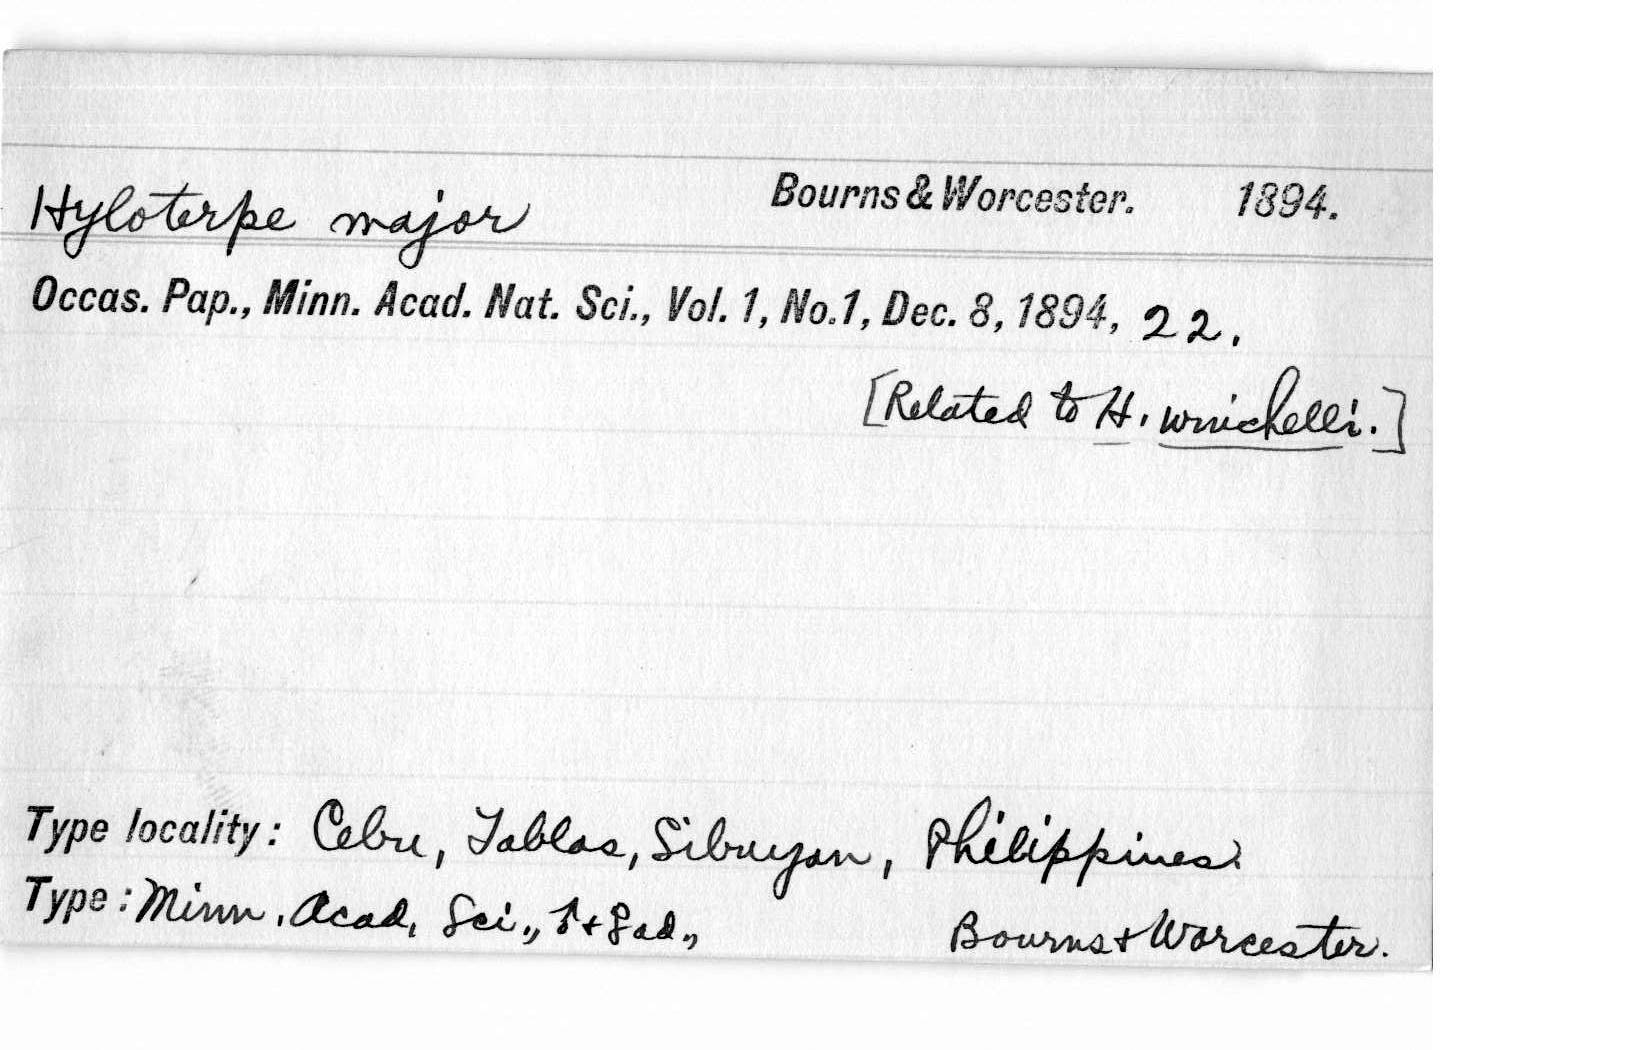 Hyloterpe major Bourns & Worcester. 1894.
Occas. Pap., Minn. Acad. Nat. Sci., Vol. 1, No. 1, Dec. 8, 1894, 22.
[Related to H. winchelli.]
Type locality: Cebu, Tablas, Sibuyan, Philippines.
Type: Minn. Acad. Sci., ♂ + ♀ ad., Bourns + Worcester.